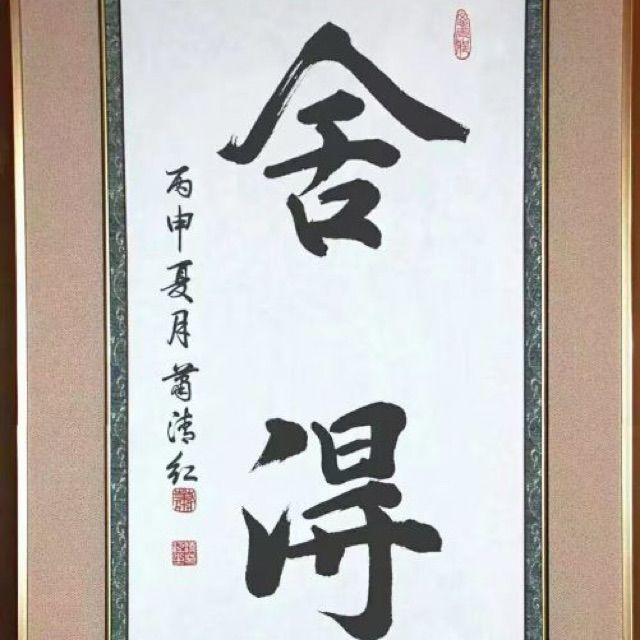 舍得
丙申夏月萧清红